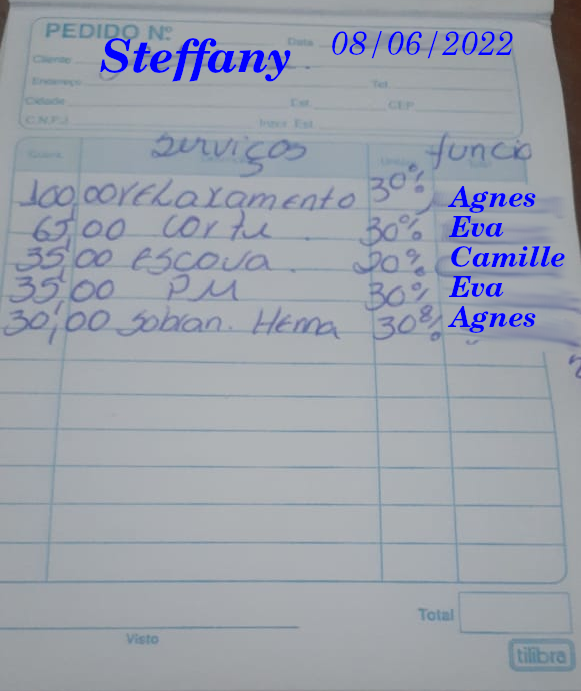 PEDIDO Nº
Data 08/06/2022
Cliente Steffany
Endereço Tel.
Cidade Est. CEP
C.N.P.J. Inscr. Est.
serviços funcio
100,00 relaxamento 30% Agnes
65,00 corte. 30% Eva
35,00 escova. 20% Camille
35,00 PM 30% Eva
30,00 Sobran. Hena 30% Agnes
Total
Visto
tilibra